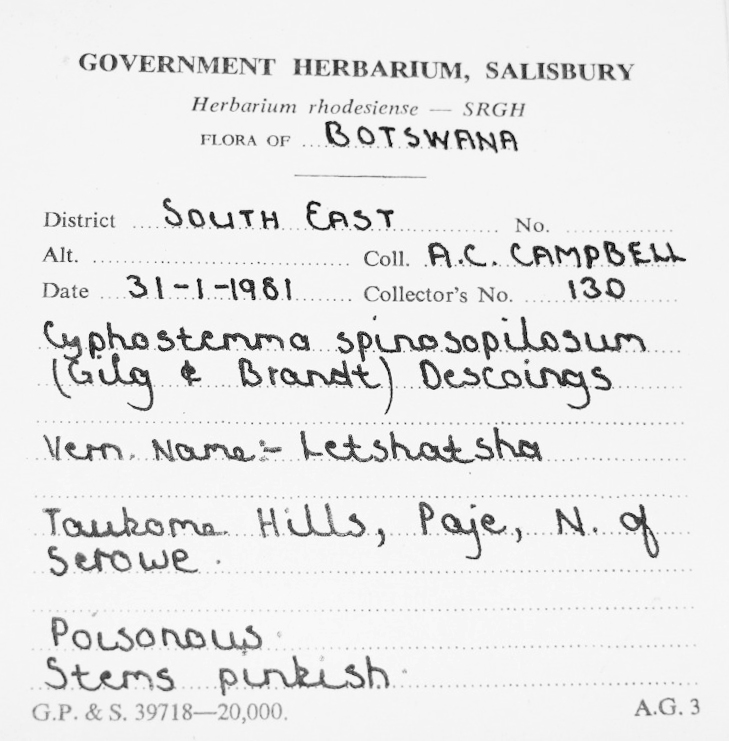 GOVERNMENT HERBARIUM, SALISBURY
Herbarium rhodesiense — SRGH
FLORA OF BOTSWANA
District SOUTH EAST No.
Alt. Coll. A.C. CAMPBELL
Date 31-1-1981 Collector's No. 130
Cyphostemma spinosopilosum
(Gilg & Brandt) Descoings
Vern. Name:- Letshatsha
Taukome Hills, Paje, N. of
Serowe.
Poisonous.
Stems pinkish.
G.P. & S. 39718—20,000. A.G. 3